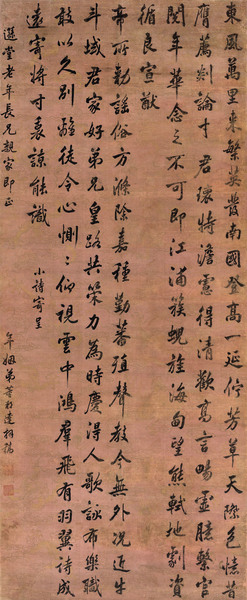 東風萬里來繁英發南國登高一延佇芳天際色憶昔
膺薦剡論才君瓌特澹慮得清歡高言暢靈臆繫官
閱年華念之不可即江浦簇蜺旌海甸望熊軾地劇資
循良宣猷
帝所勅謠俗方滌除嘉種勤蕃殖聲教今無外況近牛
斗域君家好弟兄皇路共策力為時慶得人歌詠布樂職
敢以久別離徒令心惻惻仰視雲中鴻群飛有羽翼詩成
遠寄將寸衷諒能識
小詩寄呈
選堂老年長兄親家即正
年姻弟